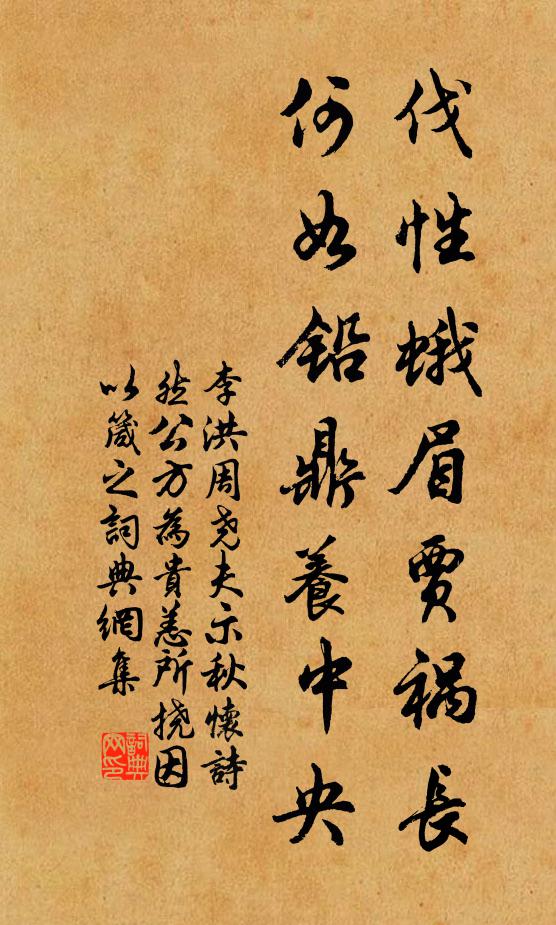 伐性蛾眉賈禍長
何如鉛鼎養中央
李洪周尧夫示秋懷詩
然公方為貴恙所撓因
以箴之詞典網集
詞典
网印